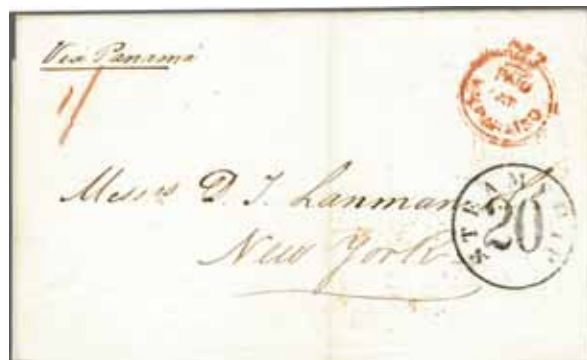 Via Panamá
1/
PAID
AT
VALPARAISO
Messrs D. T. Lanman
New York
STEAMSHIP
20